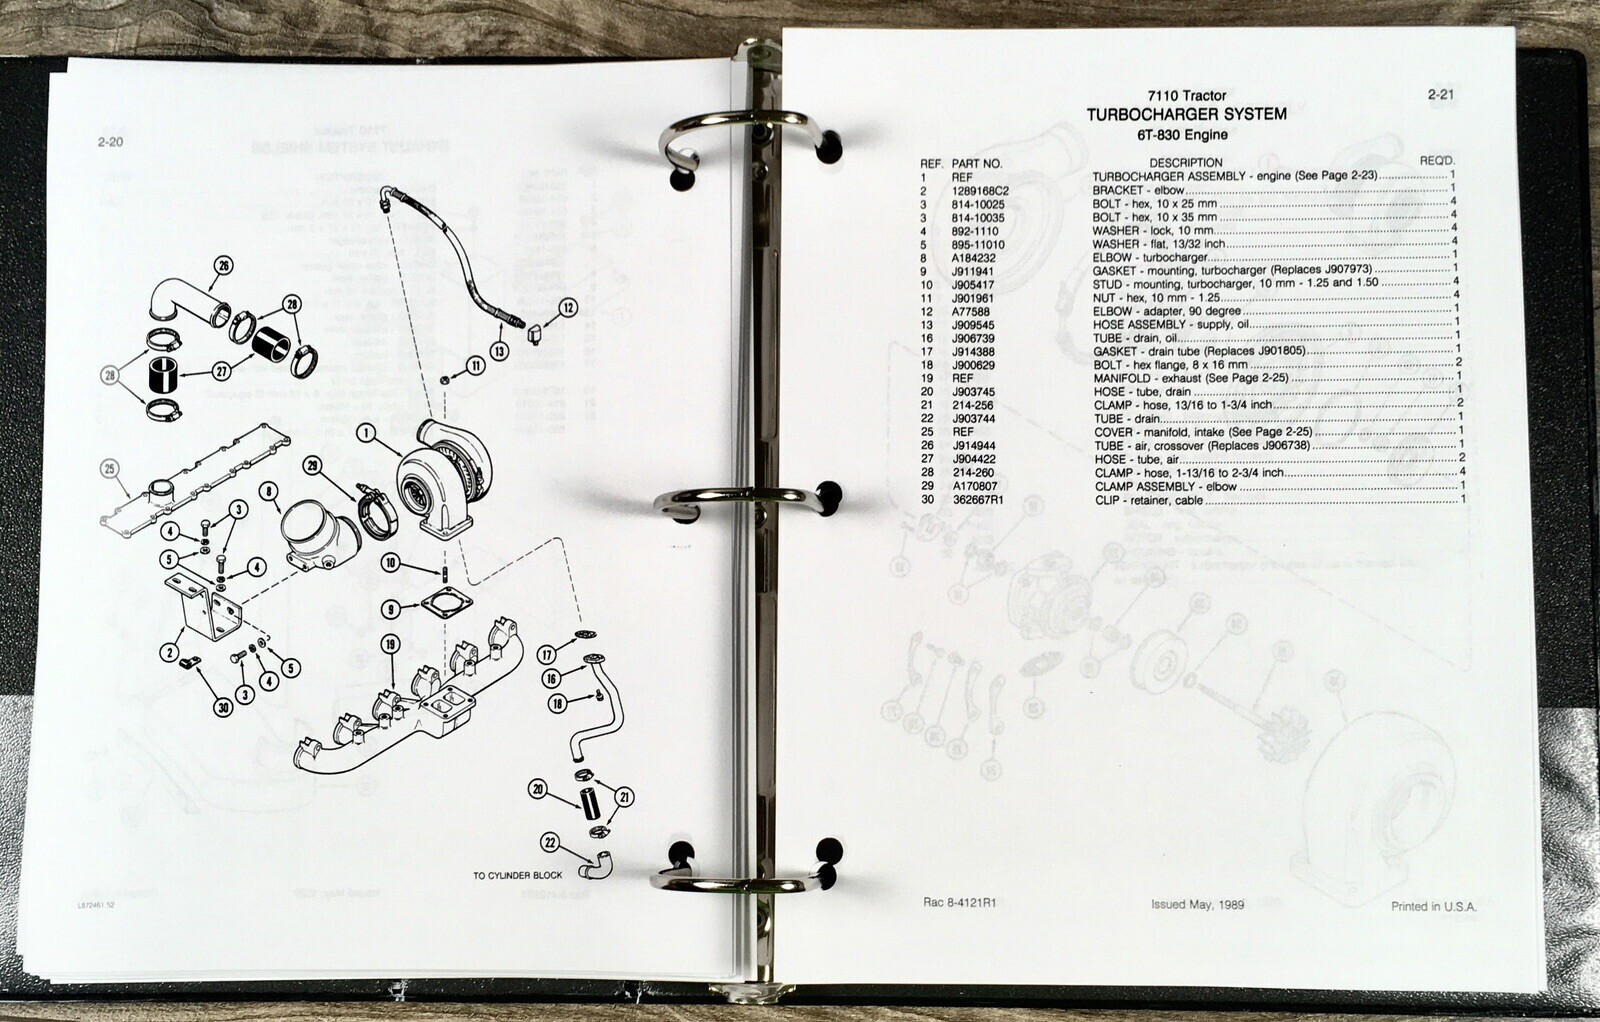 2-20
26
28
12
13
11
28
27
1
25
29
8
3
4
5
4
10
9
2
19
17
5
4
3
30
16
18
20
21
22
TO CYLINDER BLOCK
L872461.52
7110 Tractor 2-21
TURBOCHARGER SYSTEM
6T-830 Engine
REF. PART NO. DESCRIPTION REQ'D.
1 REF TURBOCHARGER ASSEMBLY - engine (See Page 2-23) 1
2 1289168C2 BRACKET - elbow 1
3 814-10025 BOLT - hex, 10 x 25 mm 4
3 814-10035 BOLT - hex, 10 x 35 mm 4
4 892-1110 WASHER - lock, 10 mm 4
5 895-11010 WASHER - flat, 13/32 inch 4
8 A184232 ELBOW - turbocharger 1
9 J911941 GASKET - mounting, turbocharger (Replaces J907973) 1
10 J905417 STUD - mounting, turbocharger, 10 mm - 1.25 and 1.50 4
11 J901961 NUT - hex, 10 mm - 1.25 4
12 A77588 ELBOW - adapter, 90 degree 1
13 J909545 HOSE ASSEMBLY - supply, oil 1
16 J906739 TUBE - drain, oil 1
17 J914388 GASKET - drain tube (Replaces J901805) 1
18 J900629 BOLT - hex flange, 8 x 16 mm 2
19 REF MANIFOLD - exhaust (See Page 2-25) 1
20 J903745 HOSE - tube, drain 1
21 214-256 CLAMP - hose, 13/16 to 1-3/4 inch 2
22 J903744 TUBE - drain 1
25 REF COVER - manifold, intake (See Page 2-25) 1
26 J914944 TUBE - air, crossover (Replaces J906738) 1
27 J904422 HOSE - tube, air 2
28 214-260 CLAMP - hose, 1-13/16 to 2-3/4 inch 4
29 A170807 CLAMP ASSEMBLY - elbow 1
30 362667R1 CLIP - retainer, cable 1
Rac 8-4121R1 Issued May, 1989 Printed in U.S.A.